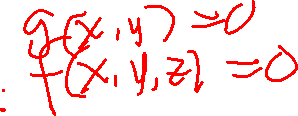 g(x,y)=0
: f(x,y,z)=0